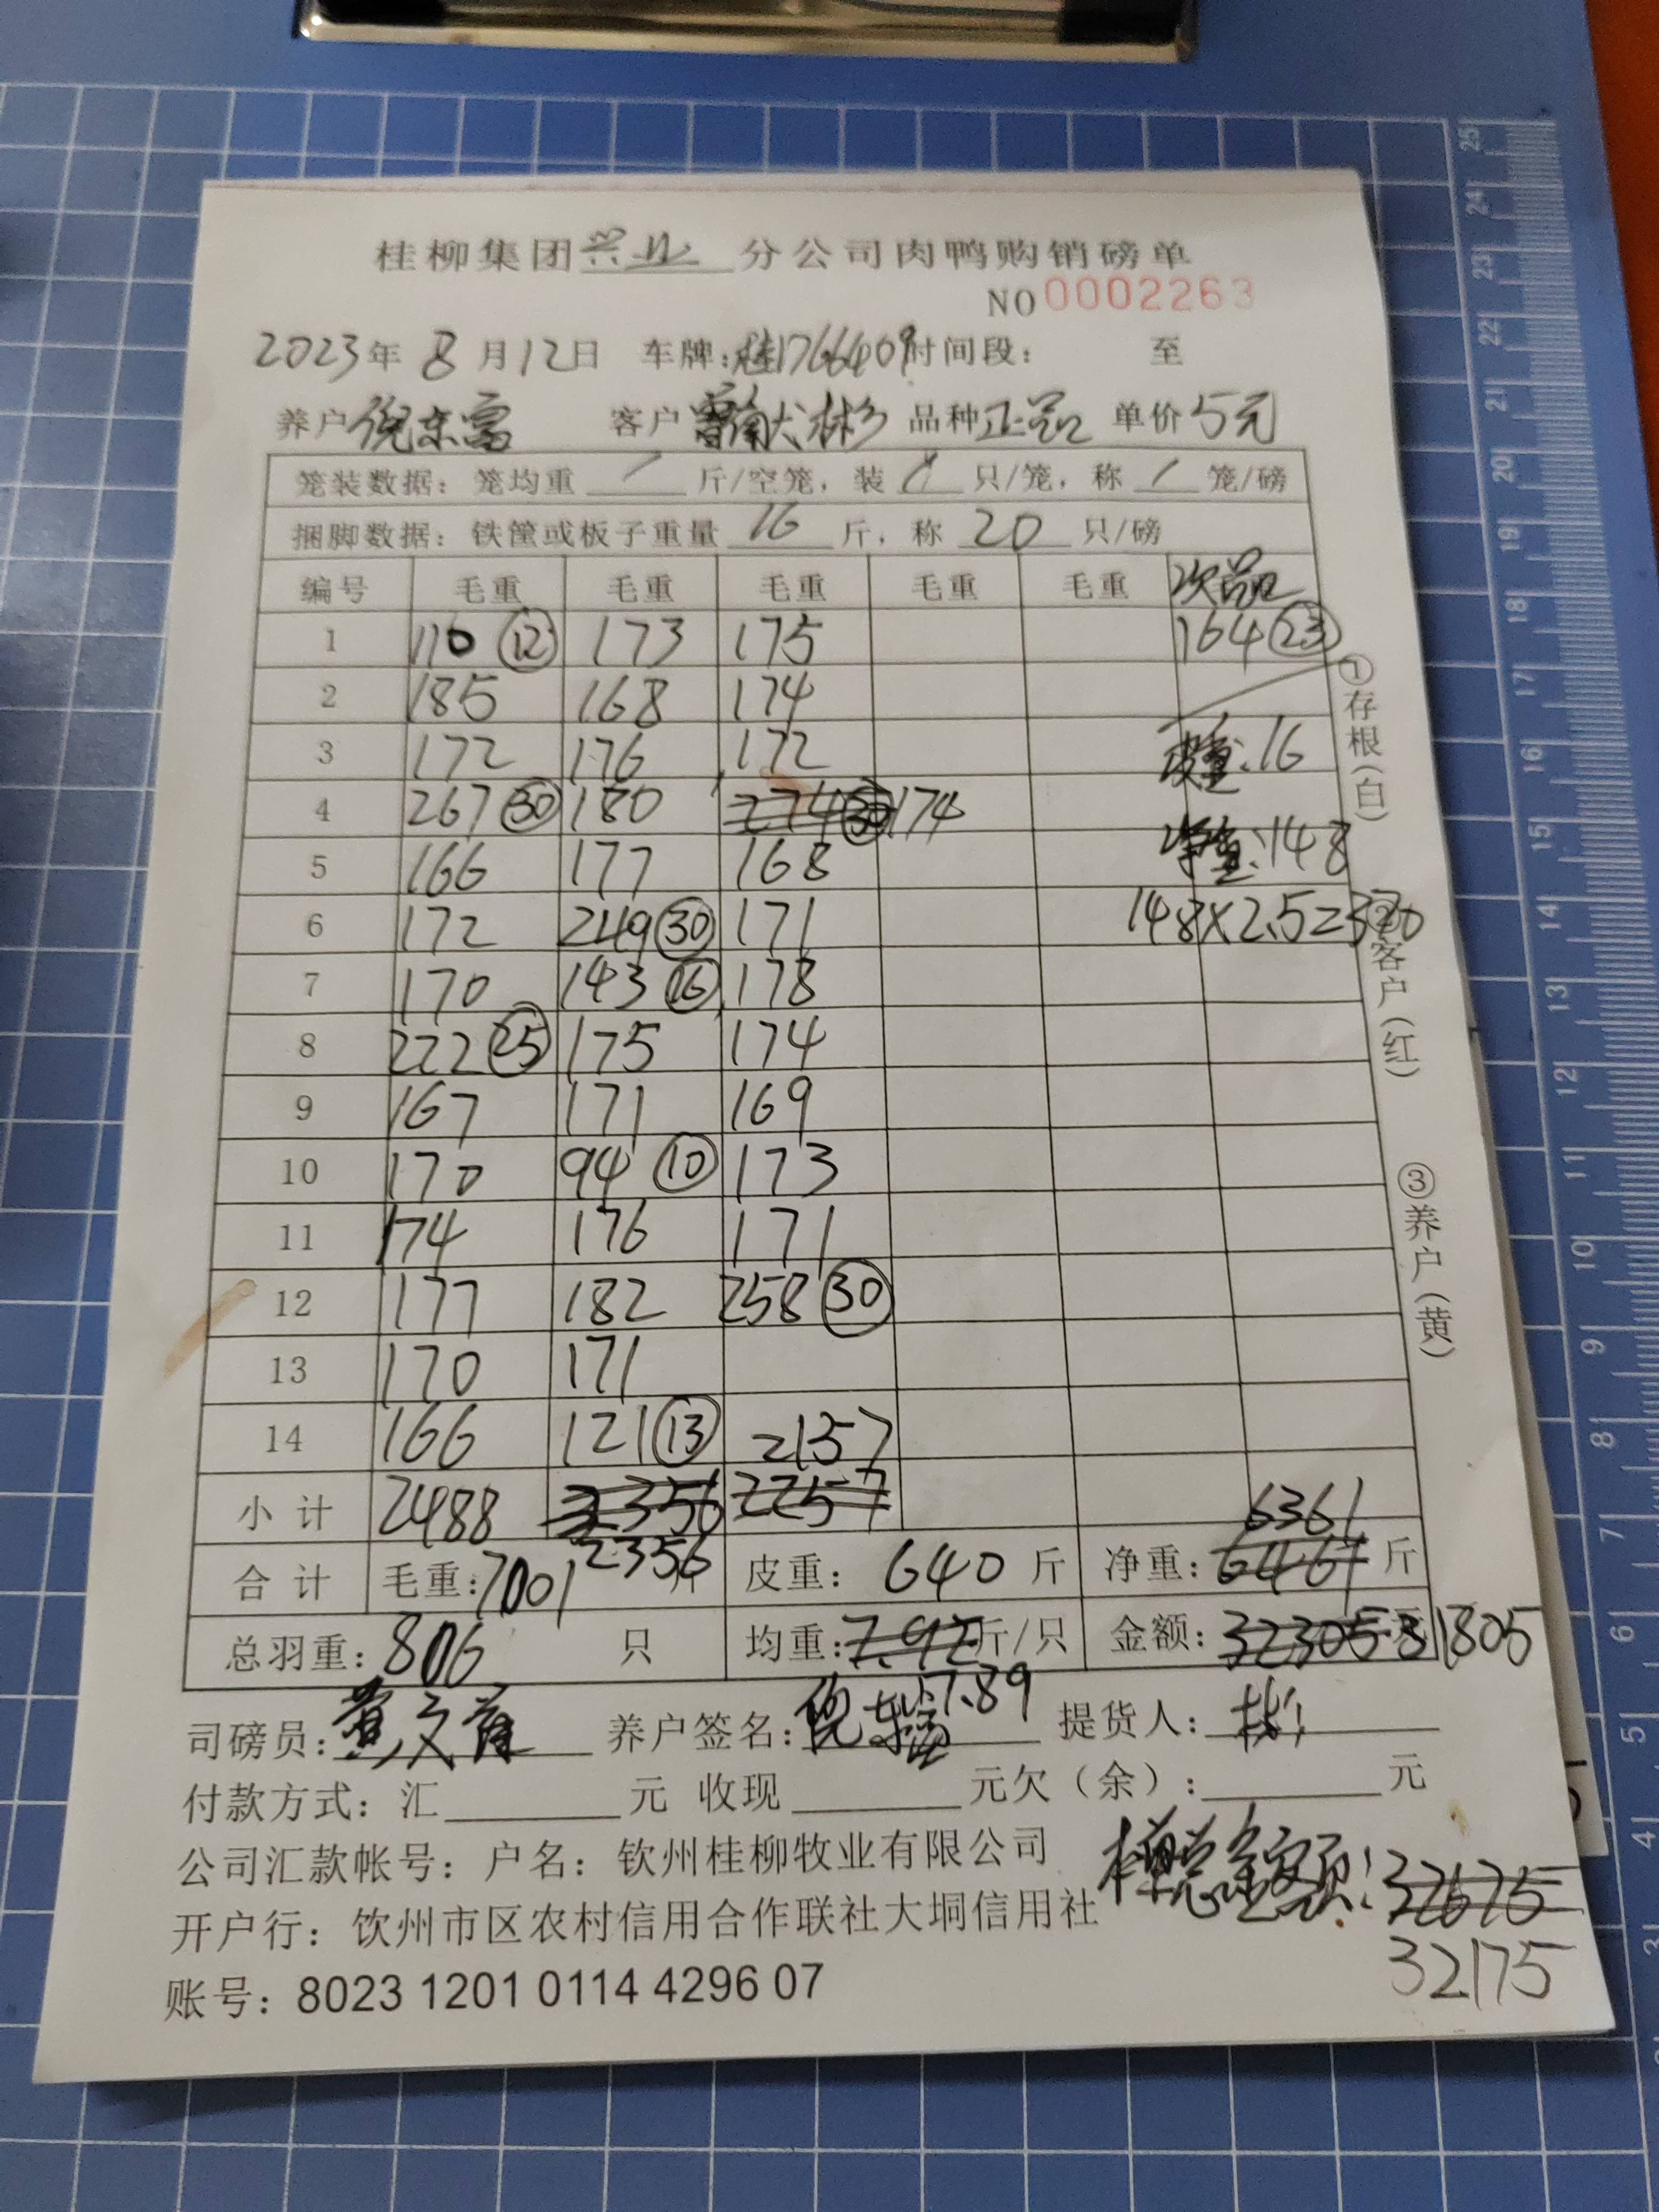 桂柳集团兴业分公司肉鸭购销磅单
NO 0002263
2023年8月12日 车牌:桂1766409 时间段: 至
养户 倪东富 客户 彬 品种 正品 单价 5元
笼装数据: 笼均重 / 斤/空笼, 装 / 只/笼, 称 / 笼/磅
捆脚数据: 铁筐或板子重量 16 斤, 称 20 只/磅
编号 毛重 毛重 毛重 毛重 毛重 次品
1 110 ⑫ 173 175 164 ㉓
2 185 168 174
3 172 176 172 皮重:16
4 267 ㉚ 180 274 ㉚ 174
5 166 177 168 净重:148
6 172 249 ㉚ 171 148×2.5=370
7 170 143 ⑯ 178
8 222 ㉕ 175 174
9 167 171 169
10 170 94 ⑩ 173
11 174 176 171
12 177 182 258 ㉚
13 170 171
14 166 121 ⑬ 2157
小计 2488 2356 2257
2356 6361
合计 毛重:7001斤 皮重: 640 斤 净重: 6461 斤
总羽重: 806 只 均重: 7.92 斤/只 金额: 32305 元 31805
7.89
司磅员: 黄文 养户签名: 倪东富 提货人: 彬
付款方式: 汇 元 收现 元欠(余): 元
公司汇款帐号: 户名: 钦州桂柳牧业有限公司
单总金额: 32675
开户行: 饮州市区农村信用合作联社大垌信用社
32175
账号: 8023 1201 0114 4296 07
①存根(白)
②客户(红)
③养户(黄)
25
24
23
22
21
20
19
18
17
16
15
14
13
12
11
10
9
8
7
6
5
4
3